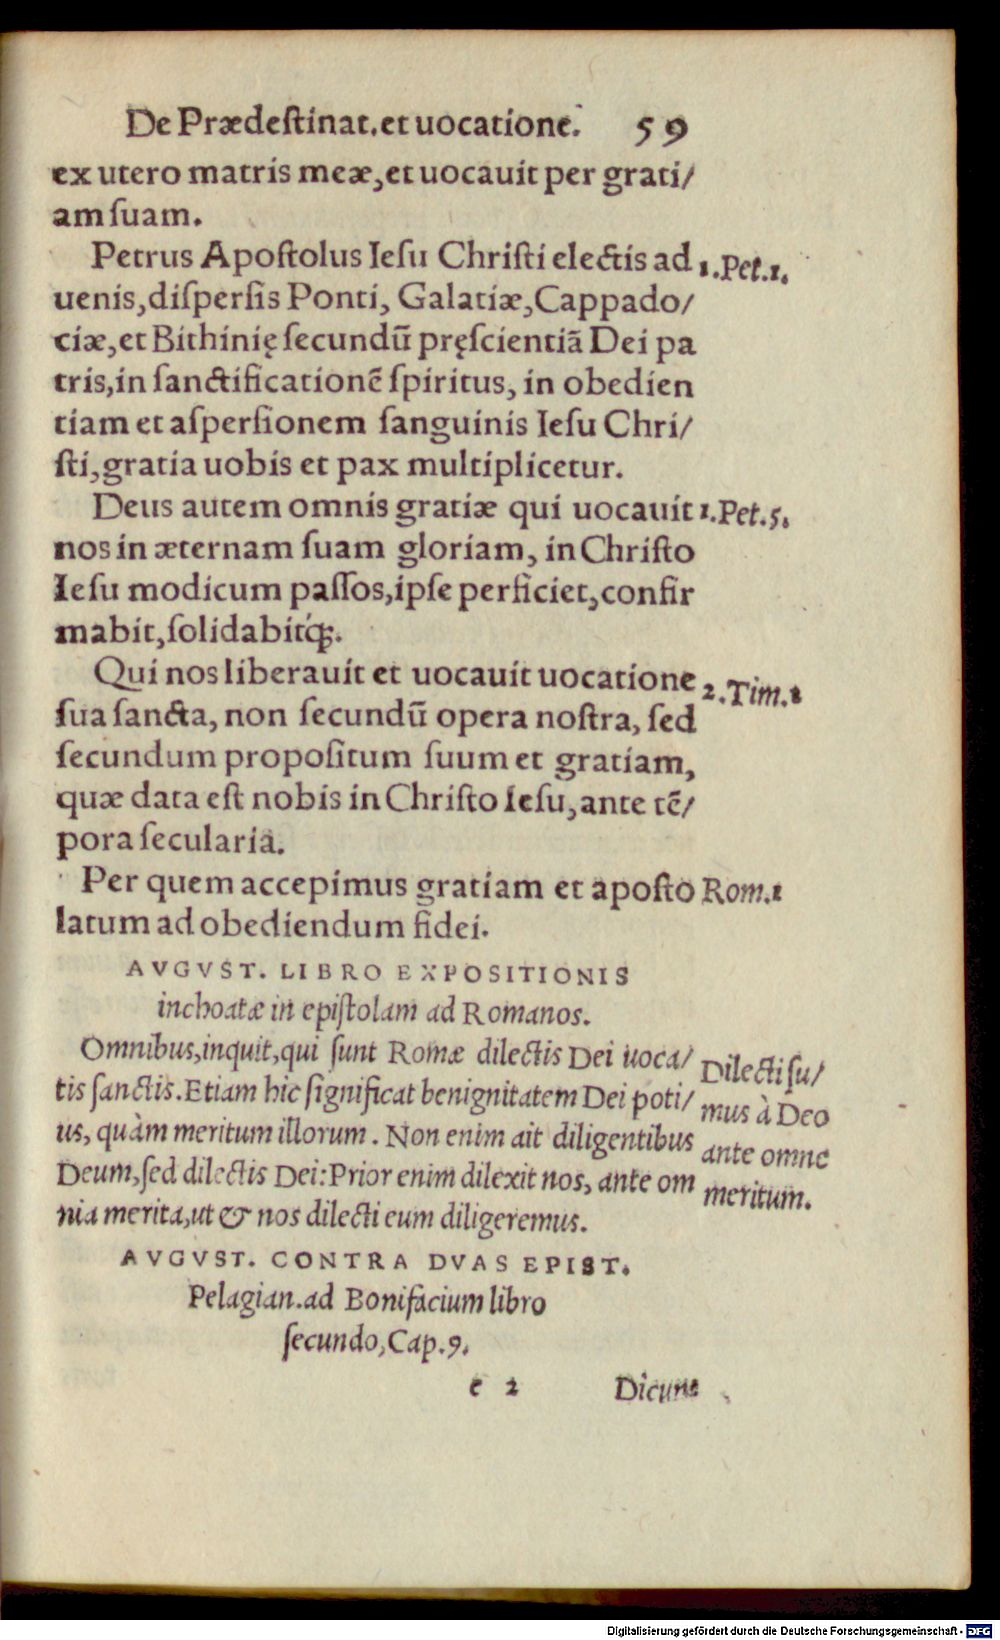 De Prædeſtinat. et uocatione. 59
ex utero matris meæ, et uocauit per grati/
am ſuam.
Petrus Apoſtolus Ieſu Chriſti electis ad 1. Pet. 1.
uenis, diſperſis Ponti, Galatiæ, Cappado/
ciæ, et Bithinię ſecundũ pręſcientiã Dei pa
tris, in ſanctificationẽ ſpiritus, in obedien
tiam et aſperſionem ſanguinis Ieſu Chri/
ſti, gratia uobis et pax multiplicetur.
Deus autem omnis gratiæ qui uocauit 1. Pet. 5.
nos in æternam ſuam gloriam, in Chriſto
Ieſu modicum paſſos, ipſe perficiet, confir
mabit, ſolidabitq́;.
Qui nos liberauit et uocauit uocatione 2. Tim. 1
ſua ſancta, non ſecundũ opera noſtra, ſed
ſecundum propoſitum ſuum et gratiam,
quæ data eſt nobis in Chriſto Ieſu, ante tẽ/
pora ſecularia.
Per quem accepimus gratiam et apoſto Rom. 1
latum ad obediendum fidei.
AVGVST. LIBRO EXPOSITIONIS
inchoatæ in epiſtolam ad Romanos.
Omnibus, inquit, qui ſunt Romæ dilectis Dei uoca/
tis ſanctis. Etiam hic ſignificat benignitatem Dei poti/
us, quàm meritum illorum. Non enim ait diligentibus
Deum, ſed dilectis Dei: Prior enim dilexit nos, ante om
nia merita, ut & nos dilecti eum diligeremus.
Dilecti ſu/
mus à Deo
ante omne
meritum.
AVGVST. CONTRA DVAS EPIST.
Pelagian. ad Bonifacium libro
ſecundo, Cap. 9.
e 2 Dicunt
Digitalisierung gefördert durch die Deutsche Forschungsgemeinschaft - DFG